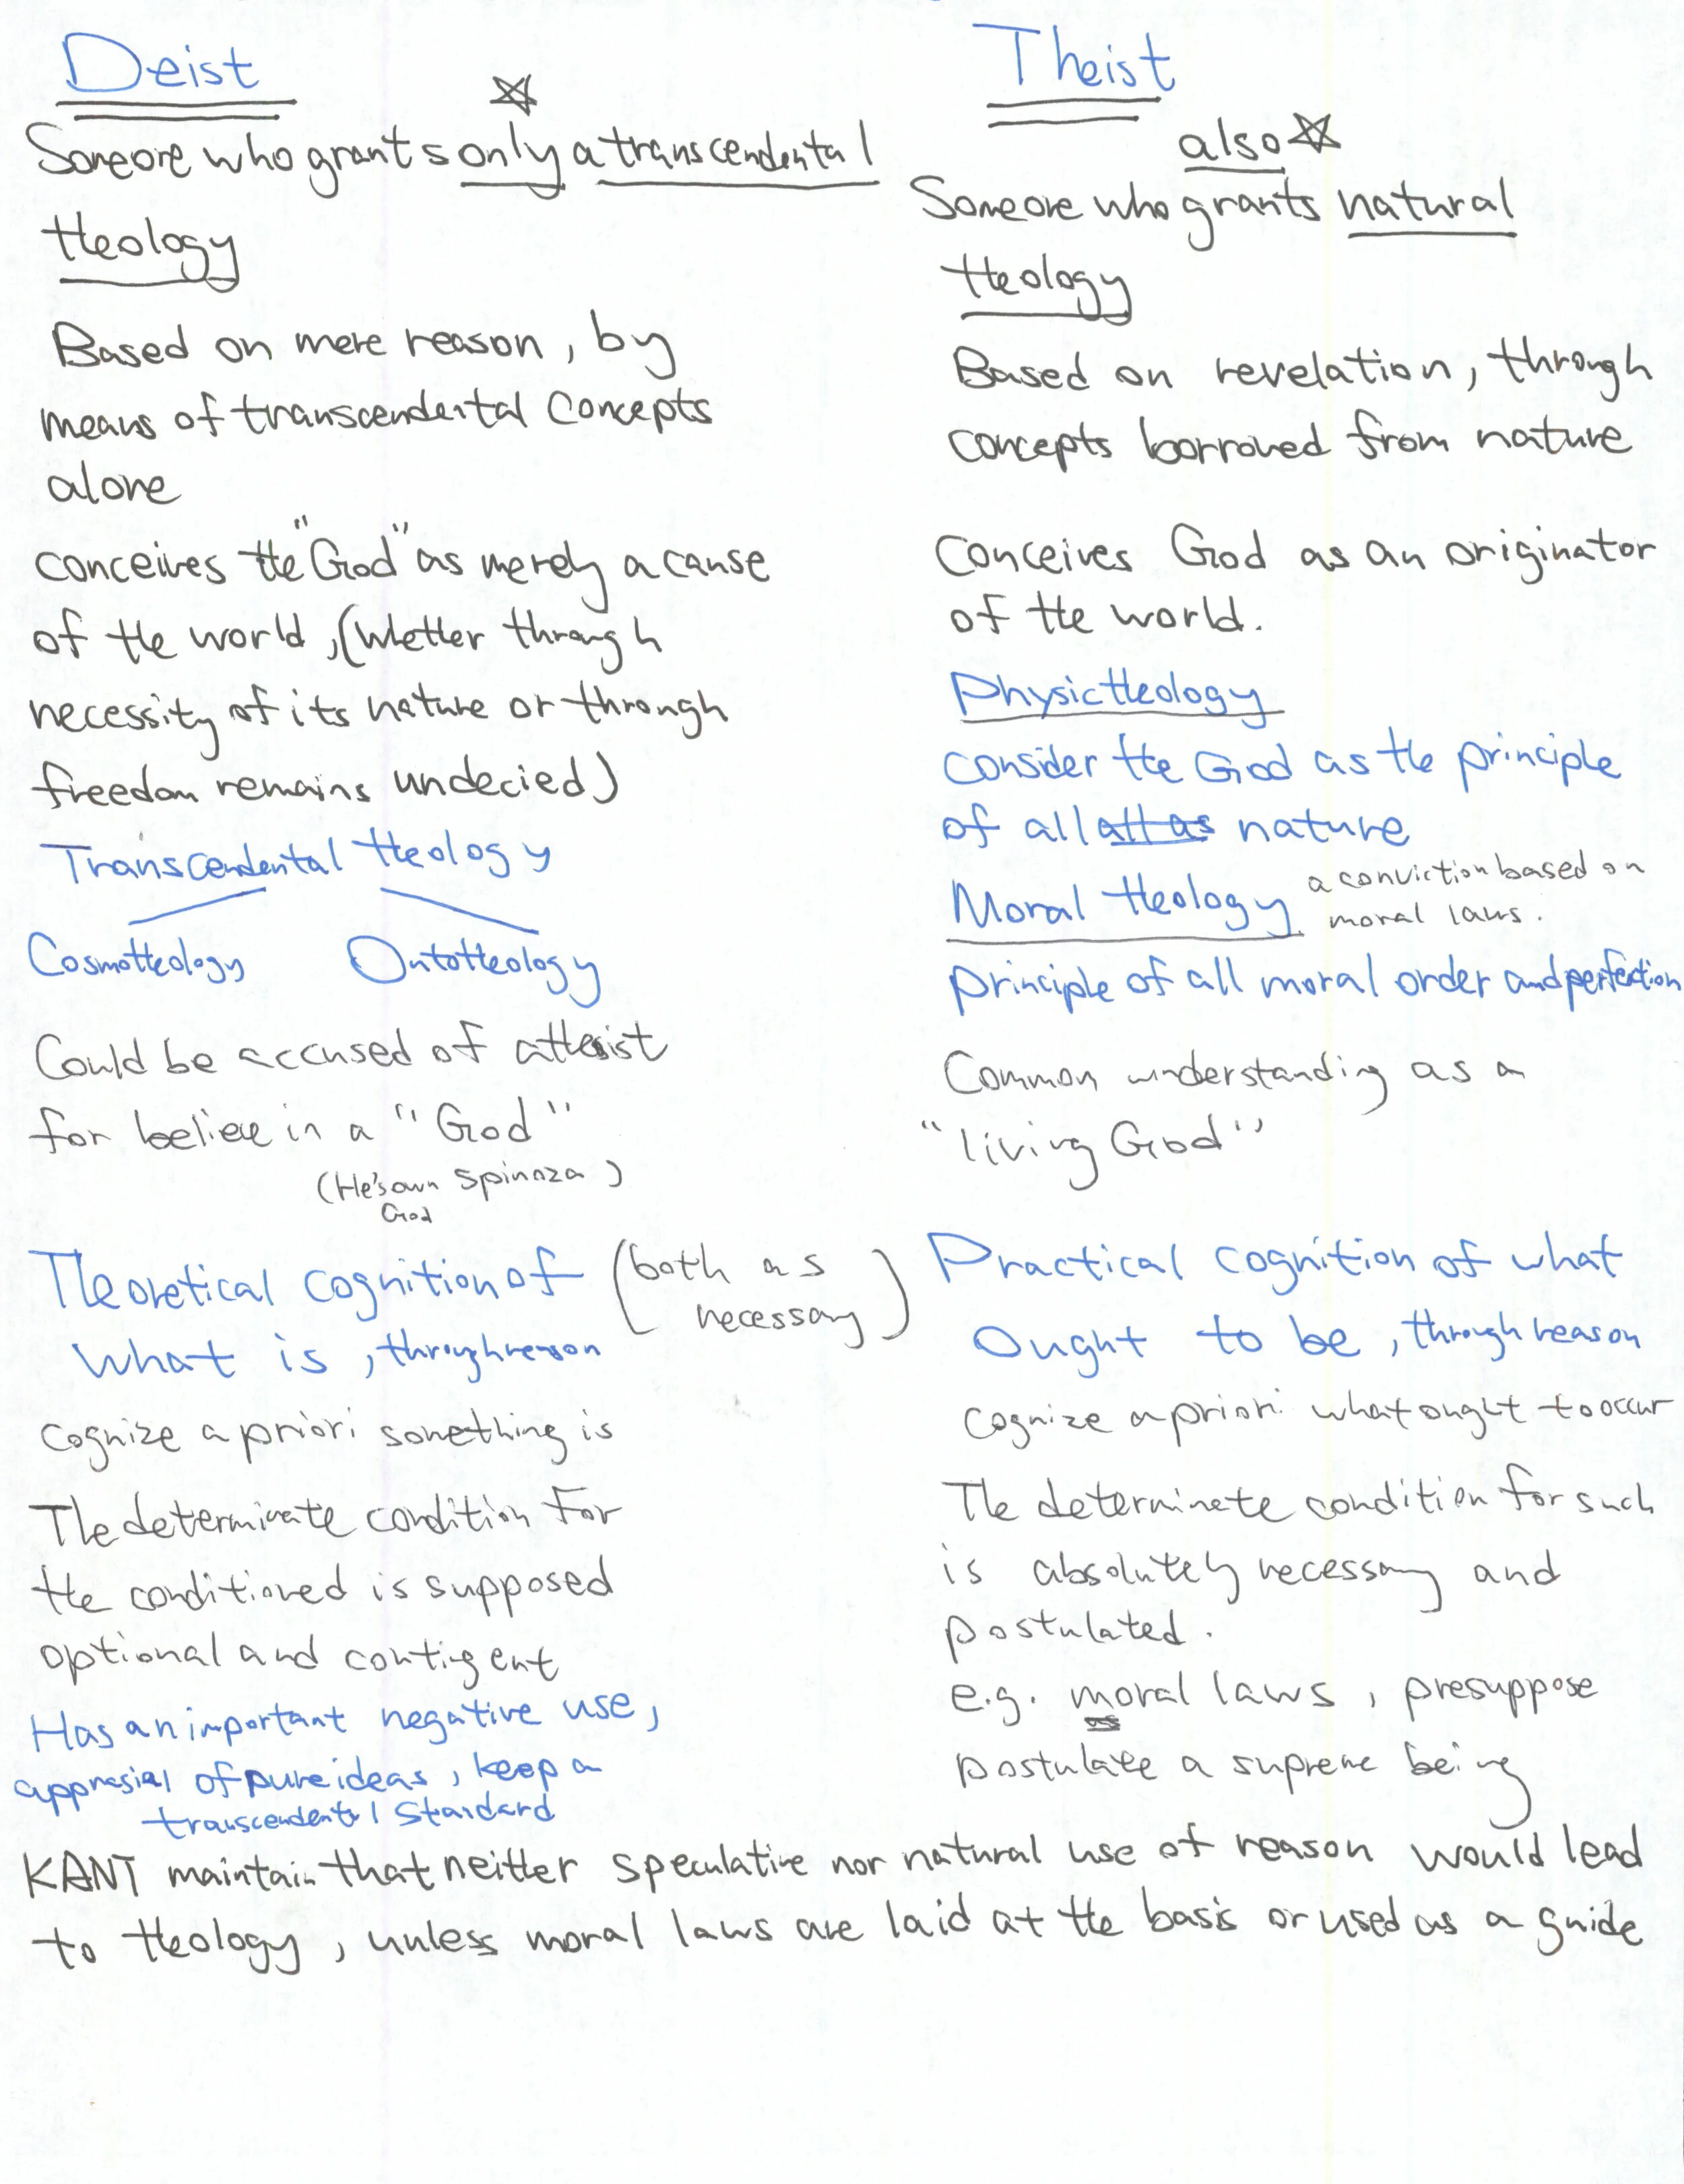 Deist
Someone who grants only a transcendental
theology
Based on mere reason, by
means of transcendental concepts
alone
conceives the "God" as merely a cause
of the world, (whether through
necessity of its nature or through
freedom remains undecied)
Transcendental theology
Cosmotheology Ontotheology
Could be accused of atheist
for believe in a "God"
(He's own Spinoza)
God
Theoretical cognition of
what is, through reason
(both as
necessary)
cognize a priori something is
The determinate condition for
the conditioned is supposed
optional and contigent
Has an important negative use,
appresial of pure ideas, keep a
transcendental standard
Theist
also
Someone who grants natural
theology
Based on revelation, through
concepts borrowed from nature
Conceives God as an originator
of the world.
Physictheology
consider the God as the principle
of all all as nature
Moral theology a conviction based on
moral laws.
principle of all moral order and perfection
Common understanding as a
"living God"
Practical cognition of what
ought to be, through reason
cognize a priori what ought to occur
The determinate condition for such
is absolutely necessary and
postulated.
e.g. moral laws, presuppose
postulate a supreme being
KANT maintain that neither speculative nor natural use of reason would lead
to theology, unless moral laws are laid at the basis or used as a guide